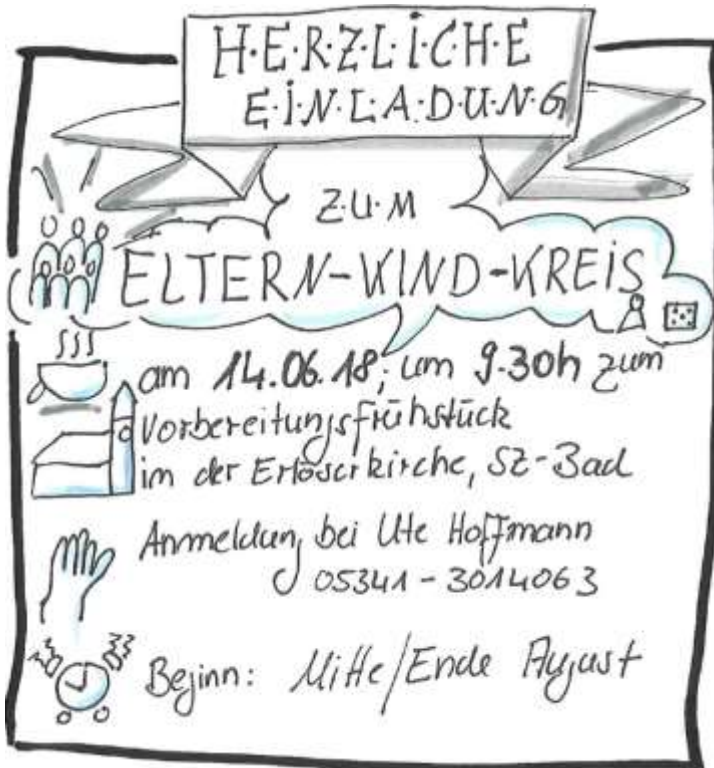 H·E·R·Z·L·I·C·H·E
E·I·N·L·A·D·U·N·G
Z·U·M
ELTERN-KIND-KREIS
am 14.06.18, um 9.30h zum
Vorbereitungsfrühstück
in der Erlöserkirche, SZ-Bad
Anmeldung bei Ute Hoffmann
05341-3014063
Beginn: Mitte/Ende August